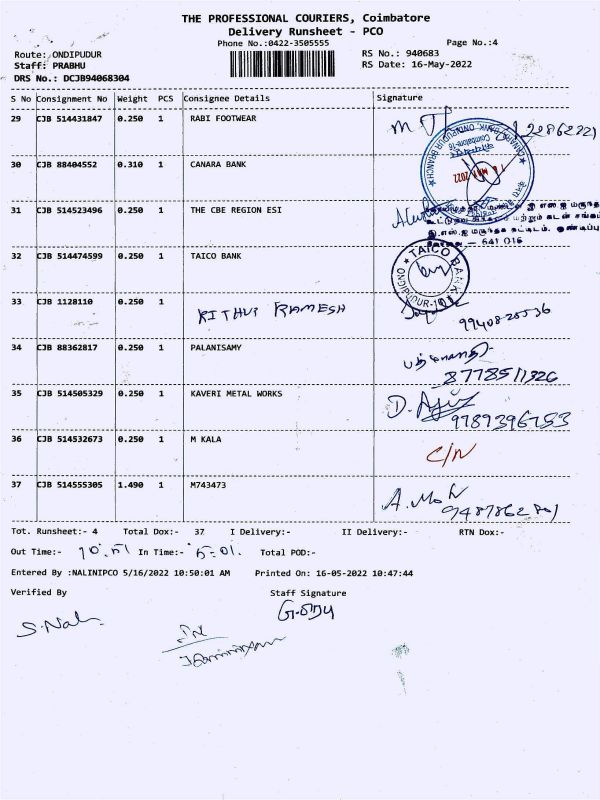 THE PROFESSIONAL COURIERS, Coimbatore
Delivery Runsheet - PCO
Phone No.:0422-3505555
Page No.:4
Route: ONDIPUDUR
RS No.: 940683
Staff: PRABHU
RS Date: 16-May-2022
DRS No.: DCJB94068304
S No Consignment No Weight PCS Consignee Details Signature
29 CJB 514431847 0.250 1 RABI FOOTWEAR
30 CJB 88404552 0.310 1 CANARA BANK
CANARA BANK, ONDIPUDUR BRANCH
Coimbatore-16
2022
31 CJB 514523496 0.250 1 THE CBE REGION ESI
- 641 016
32 CJB 514474599 0.250 1 TAICO BANK
TAICO BANK
ONDIPUDUR-
33 CJB 1128110 0.250 1 RITHUI RAMESH
34 CJB 88362817 0.250 1 PALANISAMY
8778511326
35 CJB 514505329 0.250 1 KAVERI METAL WORKS
9789396753
36 CJB 514532673 0.250 1 M KALA C/N
37 CJB 514555305 1.490 1 M743473
Tot. Runsheet:- 4 Total Dox:- 37 I Delivery:- II Delivery:- RTN Dox:-
Out Time:- In Time:- Total POD:-
Entered By :NALINIPCO 5/16/2022 10:50:01 AM Printed On: 16-05-2022 10:47:44
Verified By Staff Signature